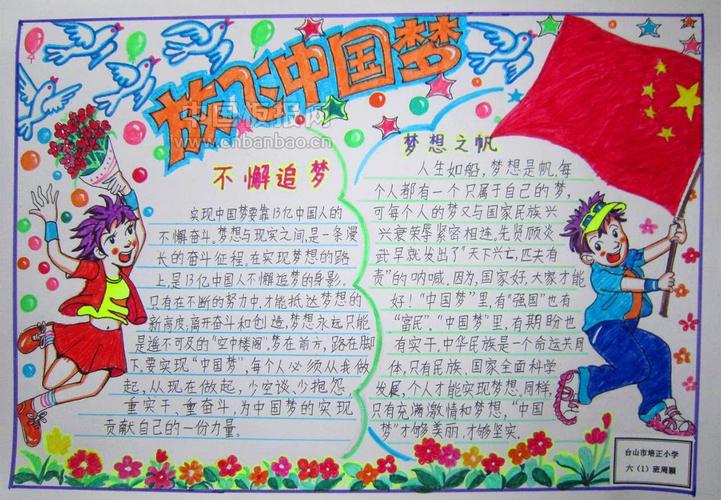 放飞中国梦
中国板报网
www.cnbanbao.cn
不懈追梦
实现中国梦要靠13亿中国人的
不懈奋斗。梦想与现实之间,是一条漫
长的奋斗征程,在实现梦想的路
上,是13亿中国人不懈追梦的身影。
只有在不断的努力中,才能抵达梦想的
新高度,离开奋斗和创造,梦想永远只能
是遥不可及的“空中楼阁”。梦在前方,路在脚
下,要实现“中国梦”,每个人必须从我做
起,从现在做起,少空谈、少抱怨,
重实干、重奋斗,为中国梦的实现
贡献自己的一份力量。
梦想之帆
人生如船,梦想是帆,每
个人都有一个只属于自己的梦,
可每个人的梦又与国家民族兴
兴衰荣辱紧密相连,先贤顾炎
武早就发出了“天下兴亡,匹夫有
责”的呐喊。因为,国家好,大家才能
好!“中国梦”里,有“强国”也有
“富民”。“中国梦”里,有期盼也
有实干,中华民族是一个命运共同
体,只有民族、国家全面科学
发展,个人才能实现梦想,同样,
只有充满激情和梦想,“中国
梦”才够美丽,才够坚实.
台山市培正小学
六(1)班周颖